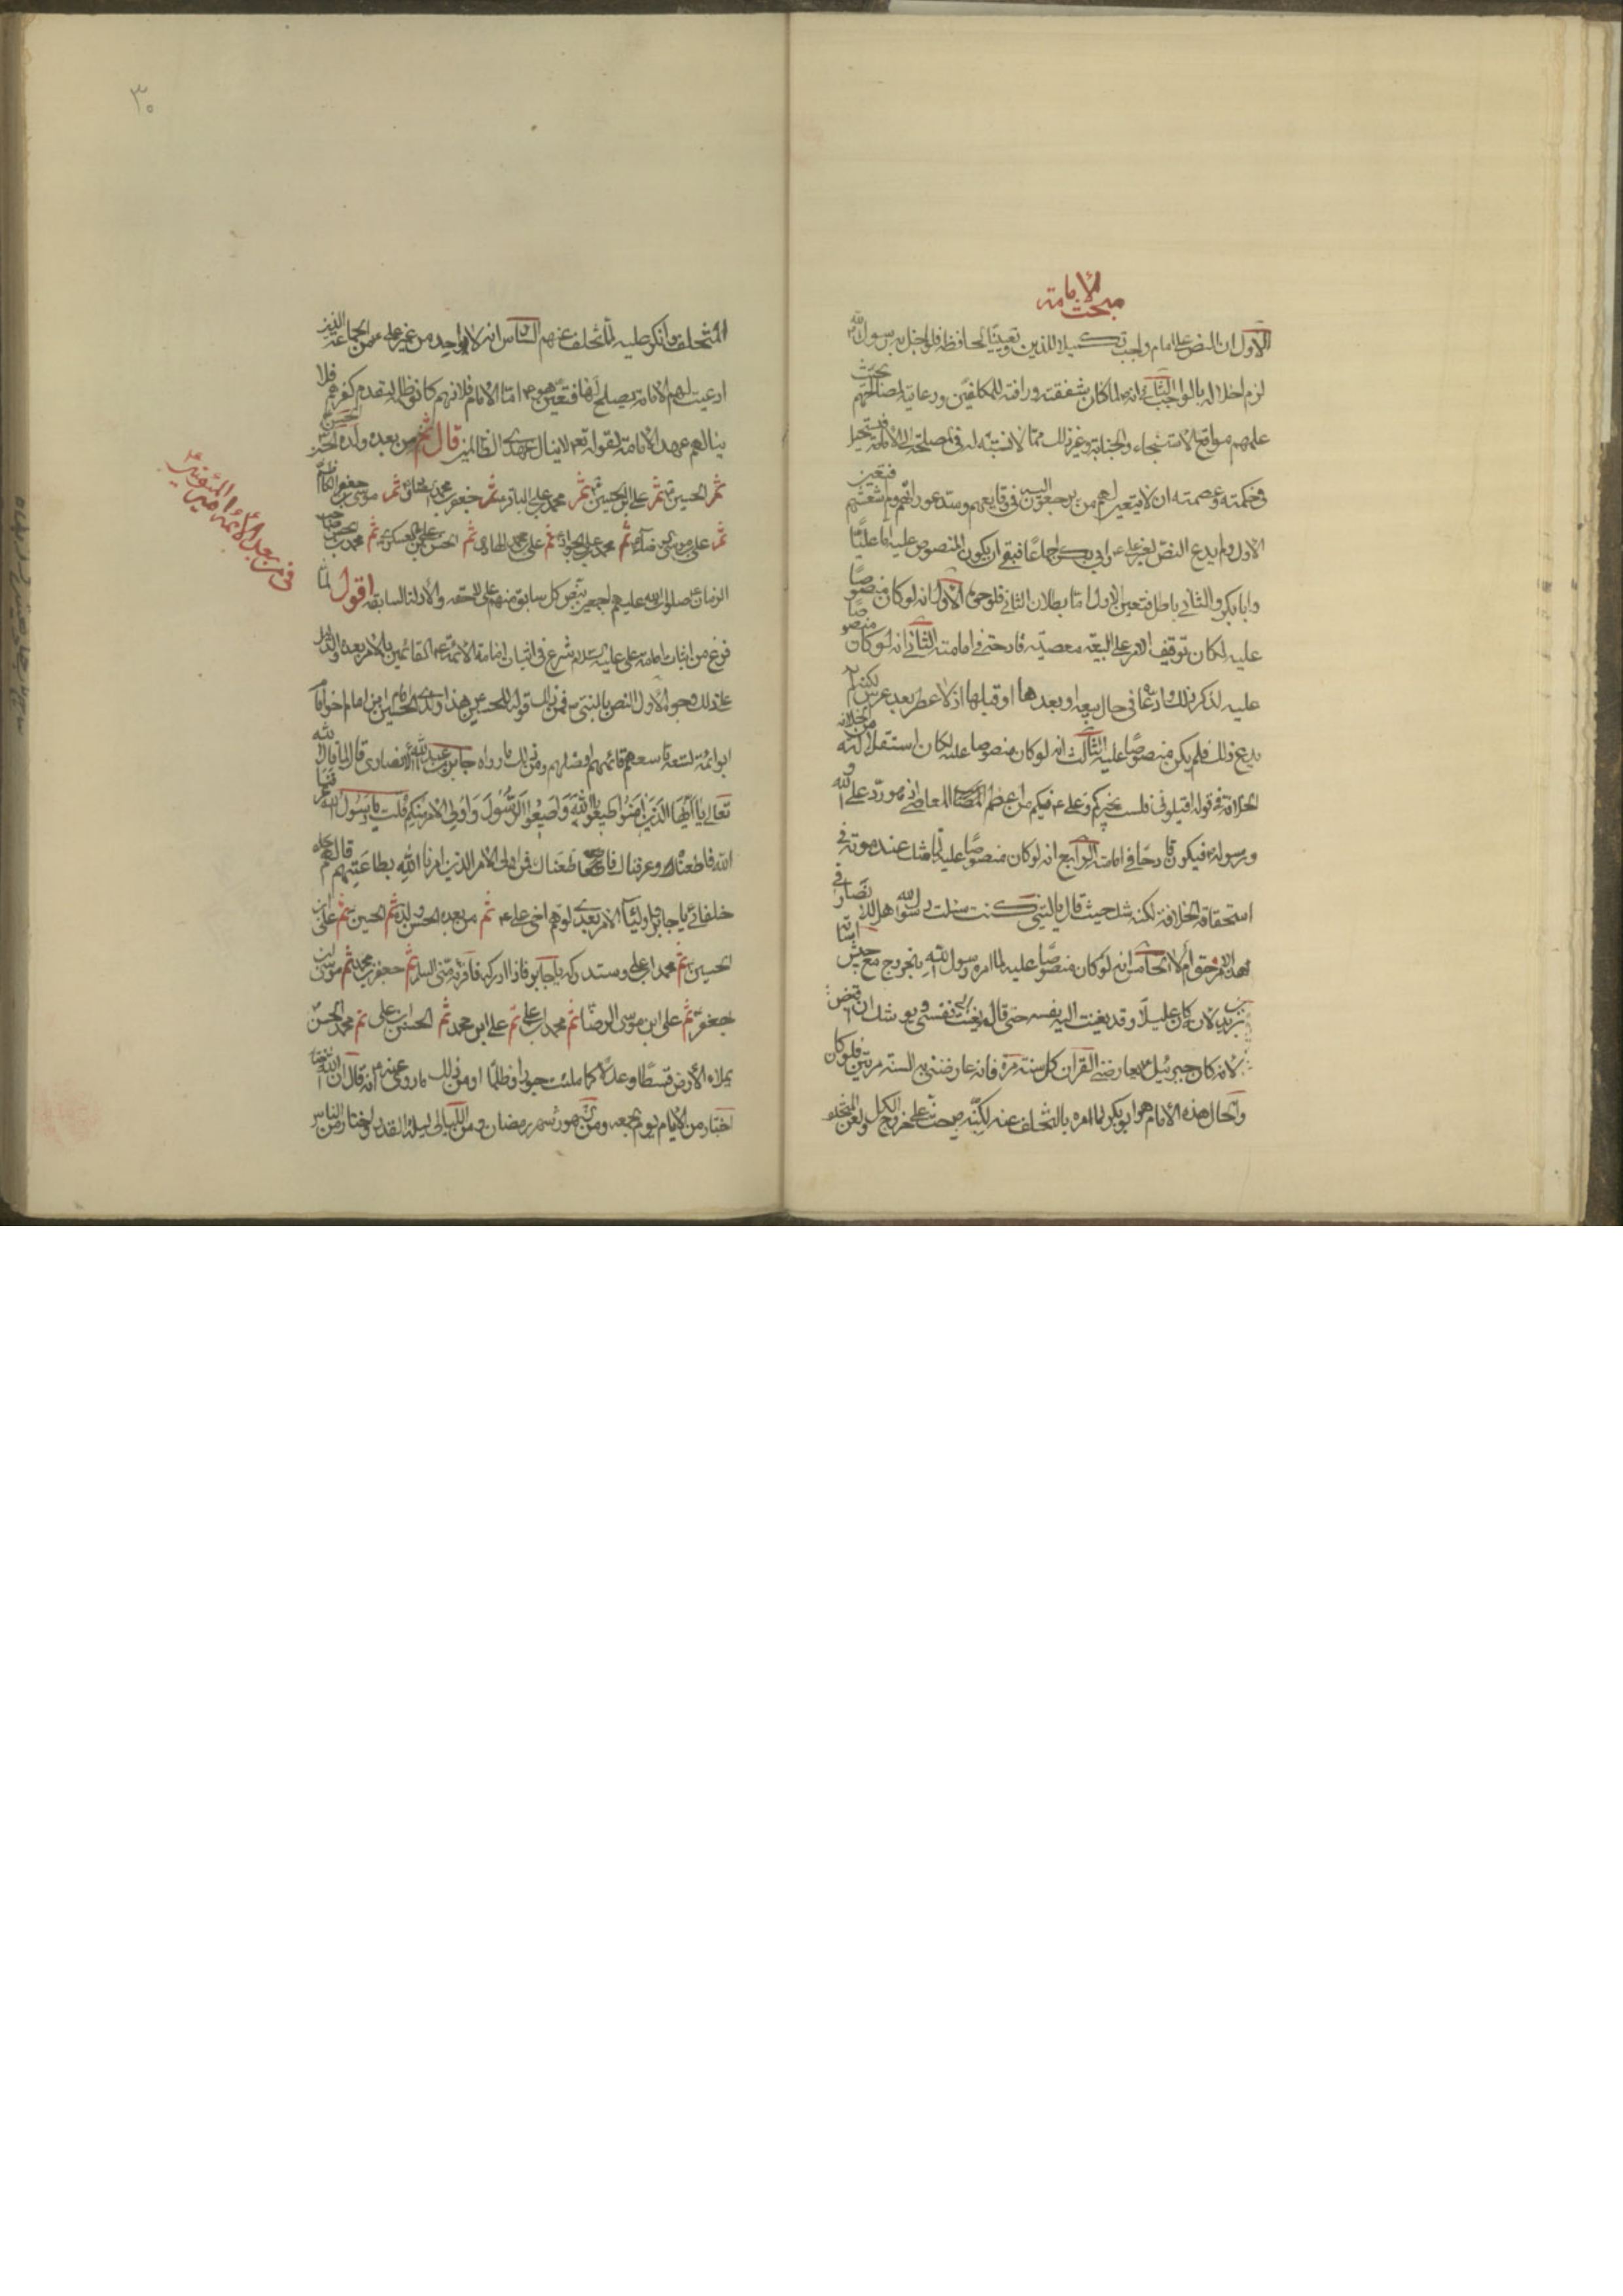 مبحث الامامة
الاول ان النص على الامام واجب تكميلا للدين وتعيينا لحافظه فلو اخل به رسول الله
لزم اخلاله بالواجب الثانى انه لما كان شفقته ورافته للمكلفين ورعايته لمصالحهم بحيث
علمهم مواقع الاستنجاء والجنابة وغير ذلك مما لا نسبة له فى المصلحة الى الامامة فيستحيل
فى حكمته وعصمته ان لا يتعين لهم من يرجعون اليه فى وقايعهم وسد عوراتهم ولم شعثهم فتعين
الاول ولم يدع النص لغير على ع وابى بكر اجماعا فبقى ان يكون المنصوص عليه اما عليا
وابا بكر والثانى باطل فتعين الاول اما بطلان الثانى فلوجوه الاول انه لو كان منصوصا
عليه لكان توقيف الامر على البيعة معصية قادحة فى امامته الثانى انه لو كان منصوصا
عليه لذكر ذلك وادعاه فى حال بيعه او بعدها او قبلها اذ لا عطر بعد عرس لكنه لم
يدع ذلك فلم يكن منصوصا عليه الثالث انه لو كان منصوصا عليه لكان استقالته من الخلافة
الخلافة فى قوله اقيلونى فلست بخيركم وعلى ع فيكم من اعظم المعاصى اذ هو رد على الله و
ورسوله فيكون قادحا فى امامته الرابع انه لو كان منصوصا عليه لما شك عند موته فى
استحقاقه الخلافة لكنه شك حيث قال يا ليتنى كنت سئلت رسول الله هل للانصار فى
هذا الامر حق ام لا الخامس انه لو كان منصوصا عليه لما امره رسول الله بالخروج مع جيش اسامة
بن زيد لانه كان عليلا وقد نعيت اليه نفسه حتى قال نعيت الى نفسى ويوشك ان اقبض
لانه كان جبرئيل يعارضنى القران كل سنة مرة فانه عارضنى به السنة مرتين فلو كان
والحال هذه الامام هو ابو بكر لما امره بالتخلف عنه لكنه حث على خروج الكل ولعن المتخلف
٣٠
المتخلف وانكر عليه لما تخلف عنهم السادس انه لا واحد من غير على ع من الجماعة الذين
ادعيت لهم الامامة يصلح لها فتعين هو ع اما الاول فلانهم كانوا ظلمة لتقدم كفرهم فلا
ينالهم عهد الامامة لقوله تعالى لا ينال عهدى الظالمين قال ثم من بعده ولده الحسن
ثم الحسين ثم على بن الحسين ثم محمد بن على الباقر ثم جعفر بن محمد الصادق ثم موسى بن جعفر الكاظم
ثم على بن موسى الرضا ثم محمد بن على الجواد ثم على بن محمد الهادى ثم الحسن بن على العسكرى ثم محمد بن الحسن صاحب
الزمان صلوات الله عليهم اجمعين بنص كل سابق منهم على لاحقه والادلة السابقة اقول لما
فرغ من اثبات امامة على عليه السلام شرع فى اثبات امامة الائمة ع القائمين بالامر بعده والدليل
على ذلك وجوه الاول النص بالنبى ص فمن ذلك قوله للحسين هذا ولدى الحسين امام بن امام اخو امام
ابو ائمة تسعة تاسعهم قائمهم افضلهم ومن ذلك ما رواه جابر بن عبد الله الانصارى قال لما قال الله
تعالى يا ايها الذين امنوا اطيعوا الله واطيعوا الرسول واولى الامر منكم قلت يا رسول الله عرفنا
الله فاطعناه وعرفناك فاطعناك فمن اولى الامر الذين امرنا الله بطاعتهم قال هم
خلفائى يا جابر واولياء الامر بعدى اولهم اخى على ع ثم من بعده الحسن ولده ثم الحسين ثم على بن
الحسين ثم محمد ابن على وستدركه يا جابر فاذا ادركته فاقرئه منى السلام ثم جعفر بن محمد ثم موسى بن
جعفر ثم على ابن موسى الرضا ثم محمد ابن على ثم على ابن محمد ثم الحسن ابن على ثم محمد بن الحسن
يملاء الارض قسطا وعدلا كما ملئت جورا وظلما ومن ذلك ما روى عنه ص انه قال ان الله
اختار من الايام يوم الجمعه ومن الشهور شهر رمضان ومن الليالى ليلة القدر واختار من الناس